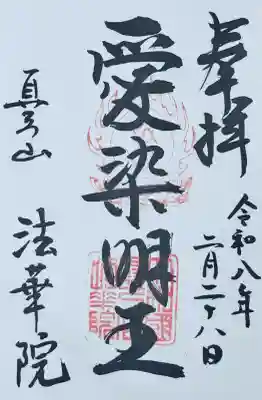 奉拝
令和八年
二月二十八日
愛染明王
真弓山
法華院